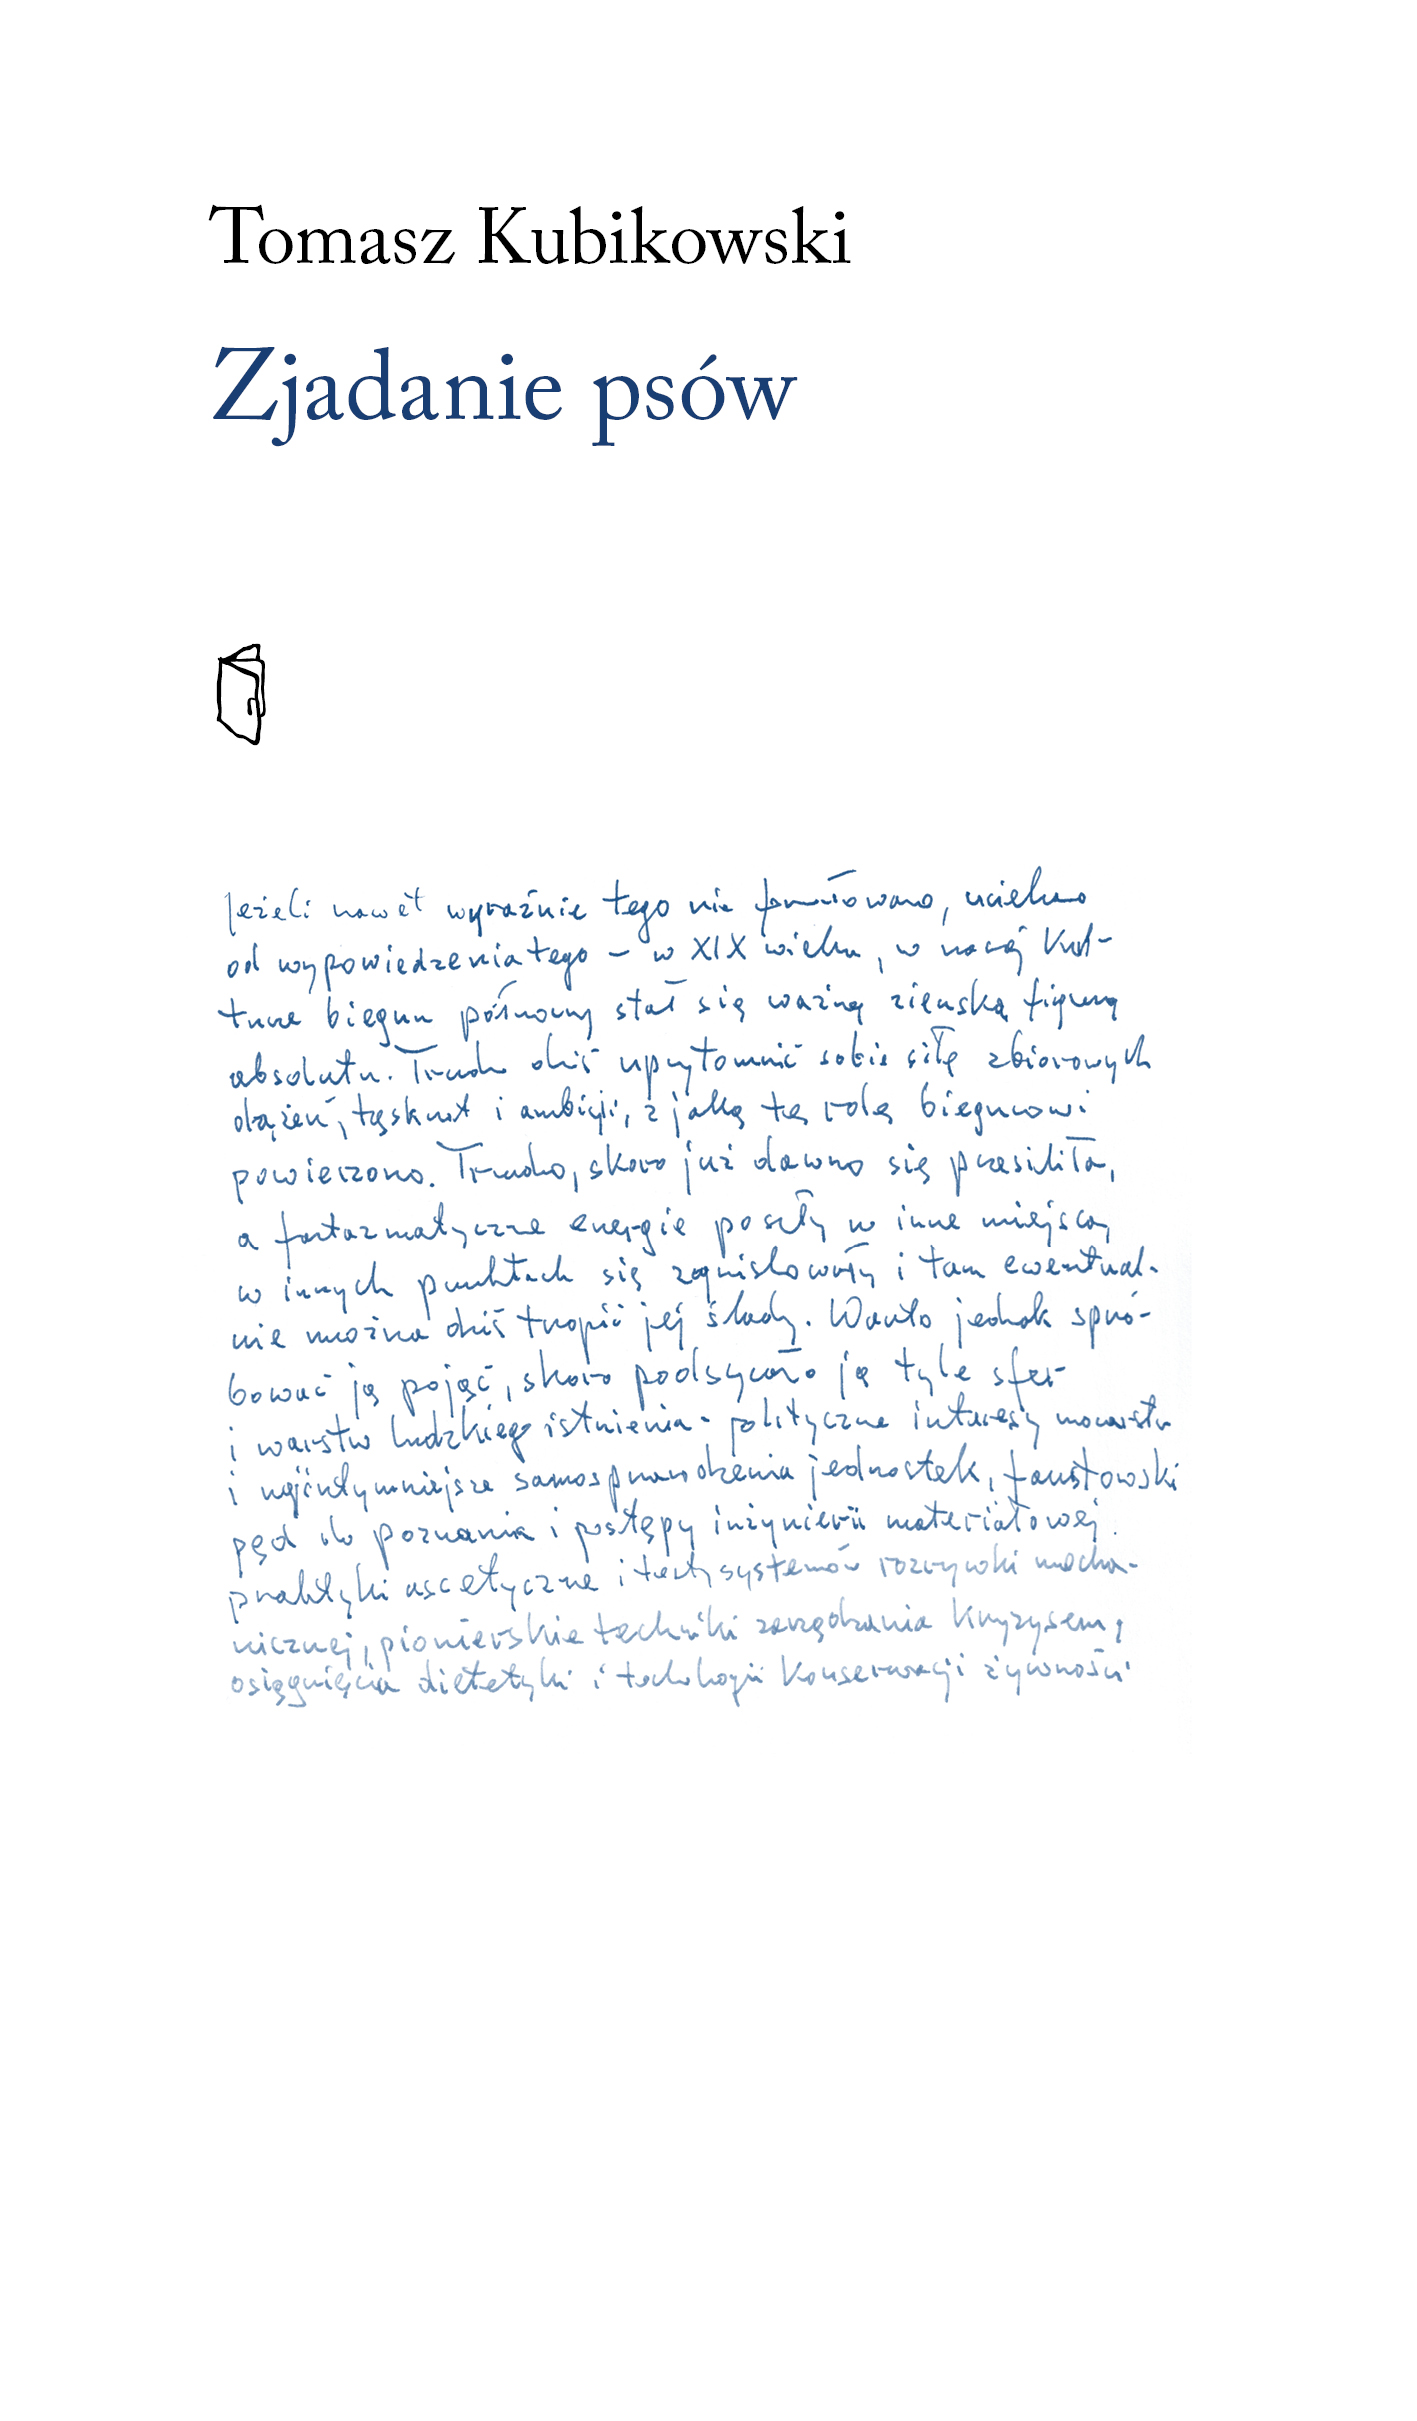 Tomasz Kubikowski
Zjadanie psów
Jeżeli nawet wyraźnie tego nie formułowano, uciekano
od wypowiedzenia tego – w XIX wieku, w naszej kul-
turze biegun północny stał się ważną ziemską figurą
absolutu. Trudno dziś uprzytomnić sobie siłę zbiorowych
dążeń, tęsknot i ambicji, z jaką tę rolę biegunowi
powierzono. Trudno, skoro już dawno się przesiliła,
a fantazmatyczne energie poszły w inne miejsca,
w innych punktach się zogniskowały i tam ewentual-
nie można dziś tropić jej ślady. Warto jednak spró-
bować ją pojąć, skoro podsycało ją tyle sfer
i warstw ludzkiego istnienia – polityczne interesy mocarstw
i najintymniejsze samosprawdzenia jednostek, faustowski
pęd do poznania i postępy inżynierii materiałowej,
praktyki ascetyczne i testy systemów rozrywki mecha-
nicznej, pionierskie techniki zarządzania kryzysem,
osiągnięcia dietetyki i technologii konserwacji żywności